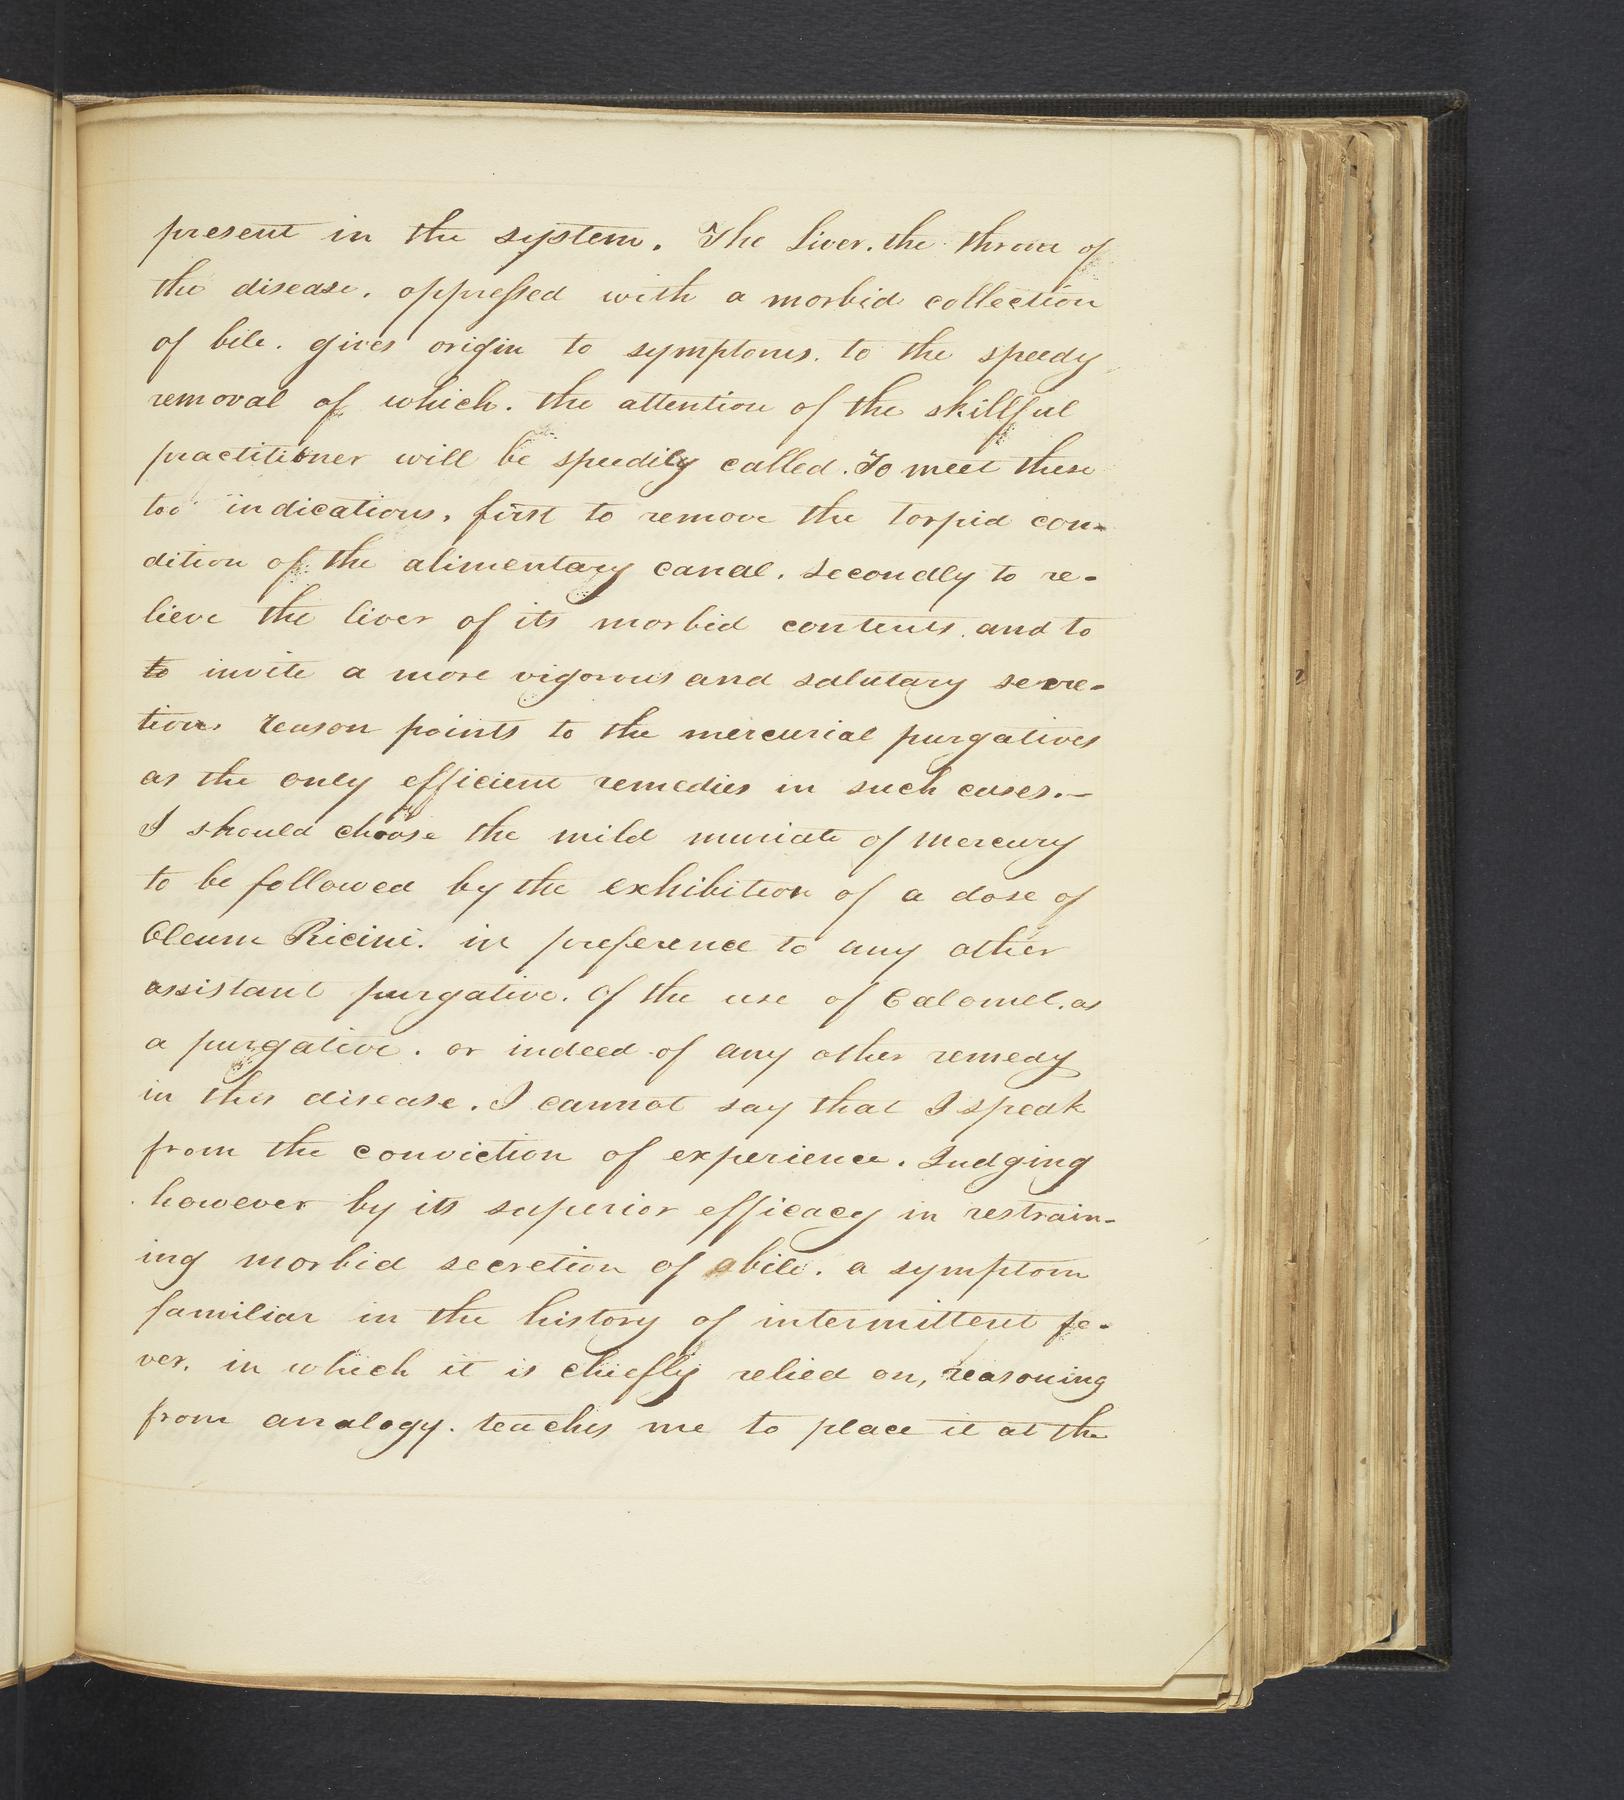 present in the system. The Liver. the throne of
the disease. oppressed with a morbid collection
of bile. gives origin to symptoms. to the speedy
removal of which. the attention of the skillful
practitioner will be speedily called. To meet these
too indications, first to remove the torpid con-
dition of the alimentary canal. secondly to re-
lieve the liver of its morbid contents. and to
to invite a more vigorous and salutary secre-
tion. reason points to the mercurial purgatives
as the only efficient remedies in such cases.—
I should choose the mild muriate of mercury
to be followed by the exhibition of a dose of
Oleum Ricini. in preference to any other
assistant purgative. Of the use of Calomel. as
a purgative. or indeed of any other remedy
in this disease. I cannot say that I speak
from the conviction of experience. Judging
however by its superior efficacy in restrain-
ing morbid secretion of bile. a symptom
familiar in the history of intermittent fe-
ver. in which it is chiefly relied on, reasoning
from analogy. teaches me to place it at the